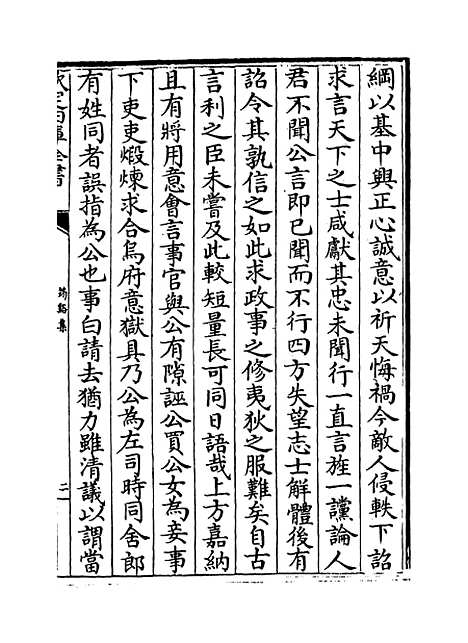 綱以基中興正心誠意以祈天悔禍今敵人侵軼下詔
求言天下之士咸獻其忠未聞行一直言旌一讜論人
君不聞公言即已聞而不行四方失望志士解體後有
詔令其孰信之如此求政事之修夷狄之服難矣自古
言利之臣未嘗及此較短量長可同日語哉上方嘉納
且有將用意會言事官與公有隙誣公買公女為妾事
下吏吏煆煉求合烏府意獄具乃公為左司時同舍郎
有姓同者誤指為公也事白請去猶力雖清議以謂當
欽定四庫全書
筠谿集
二